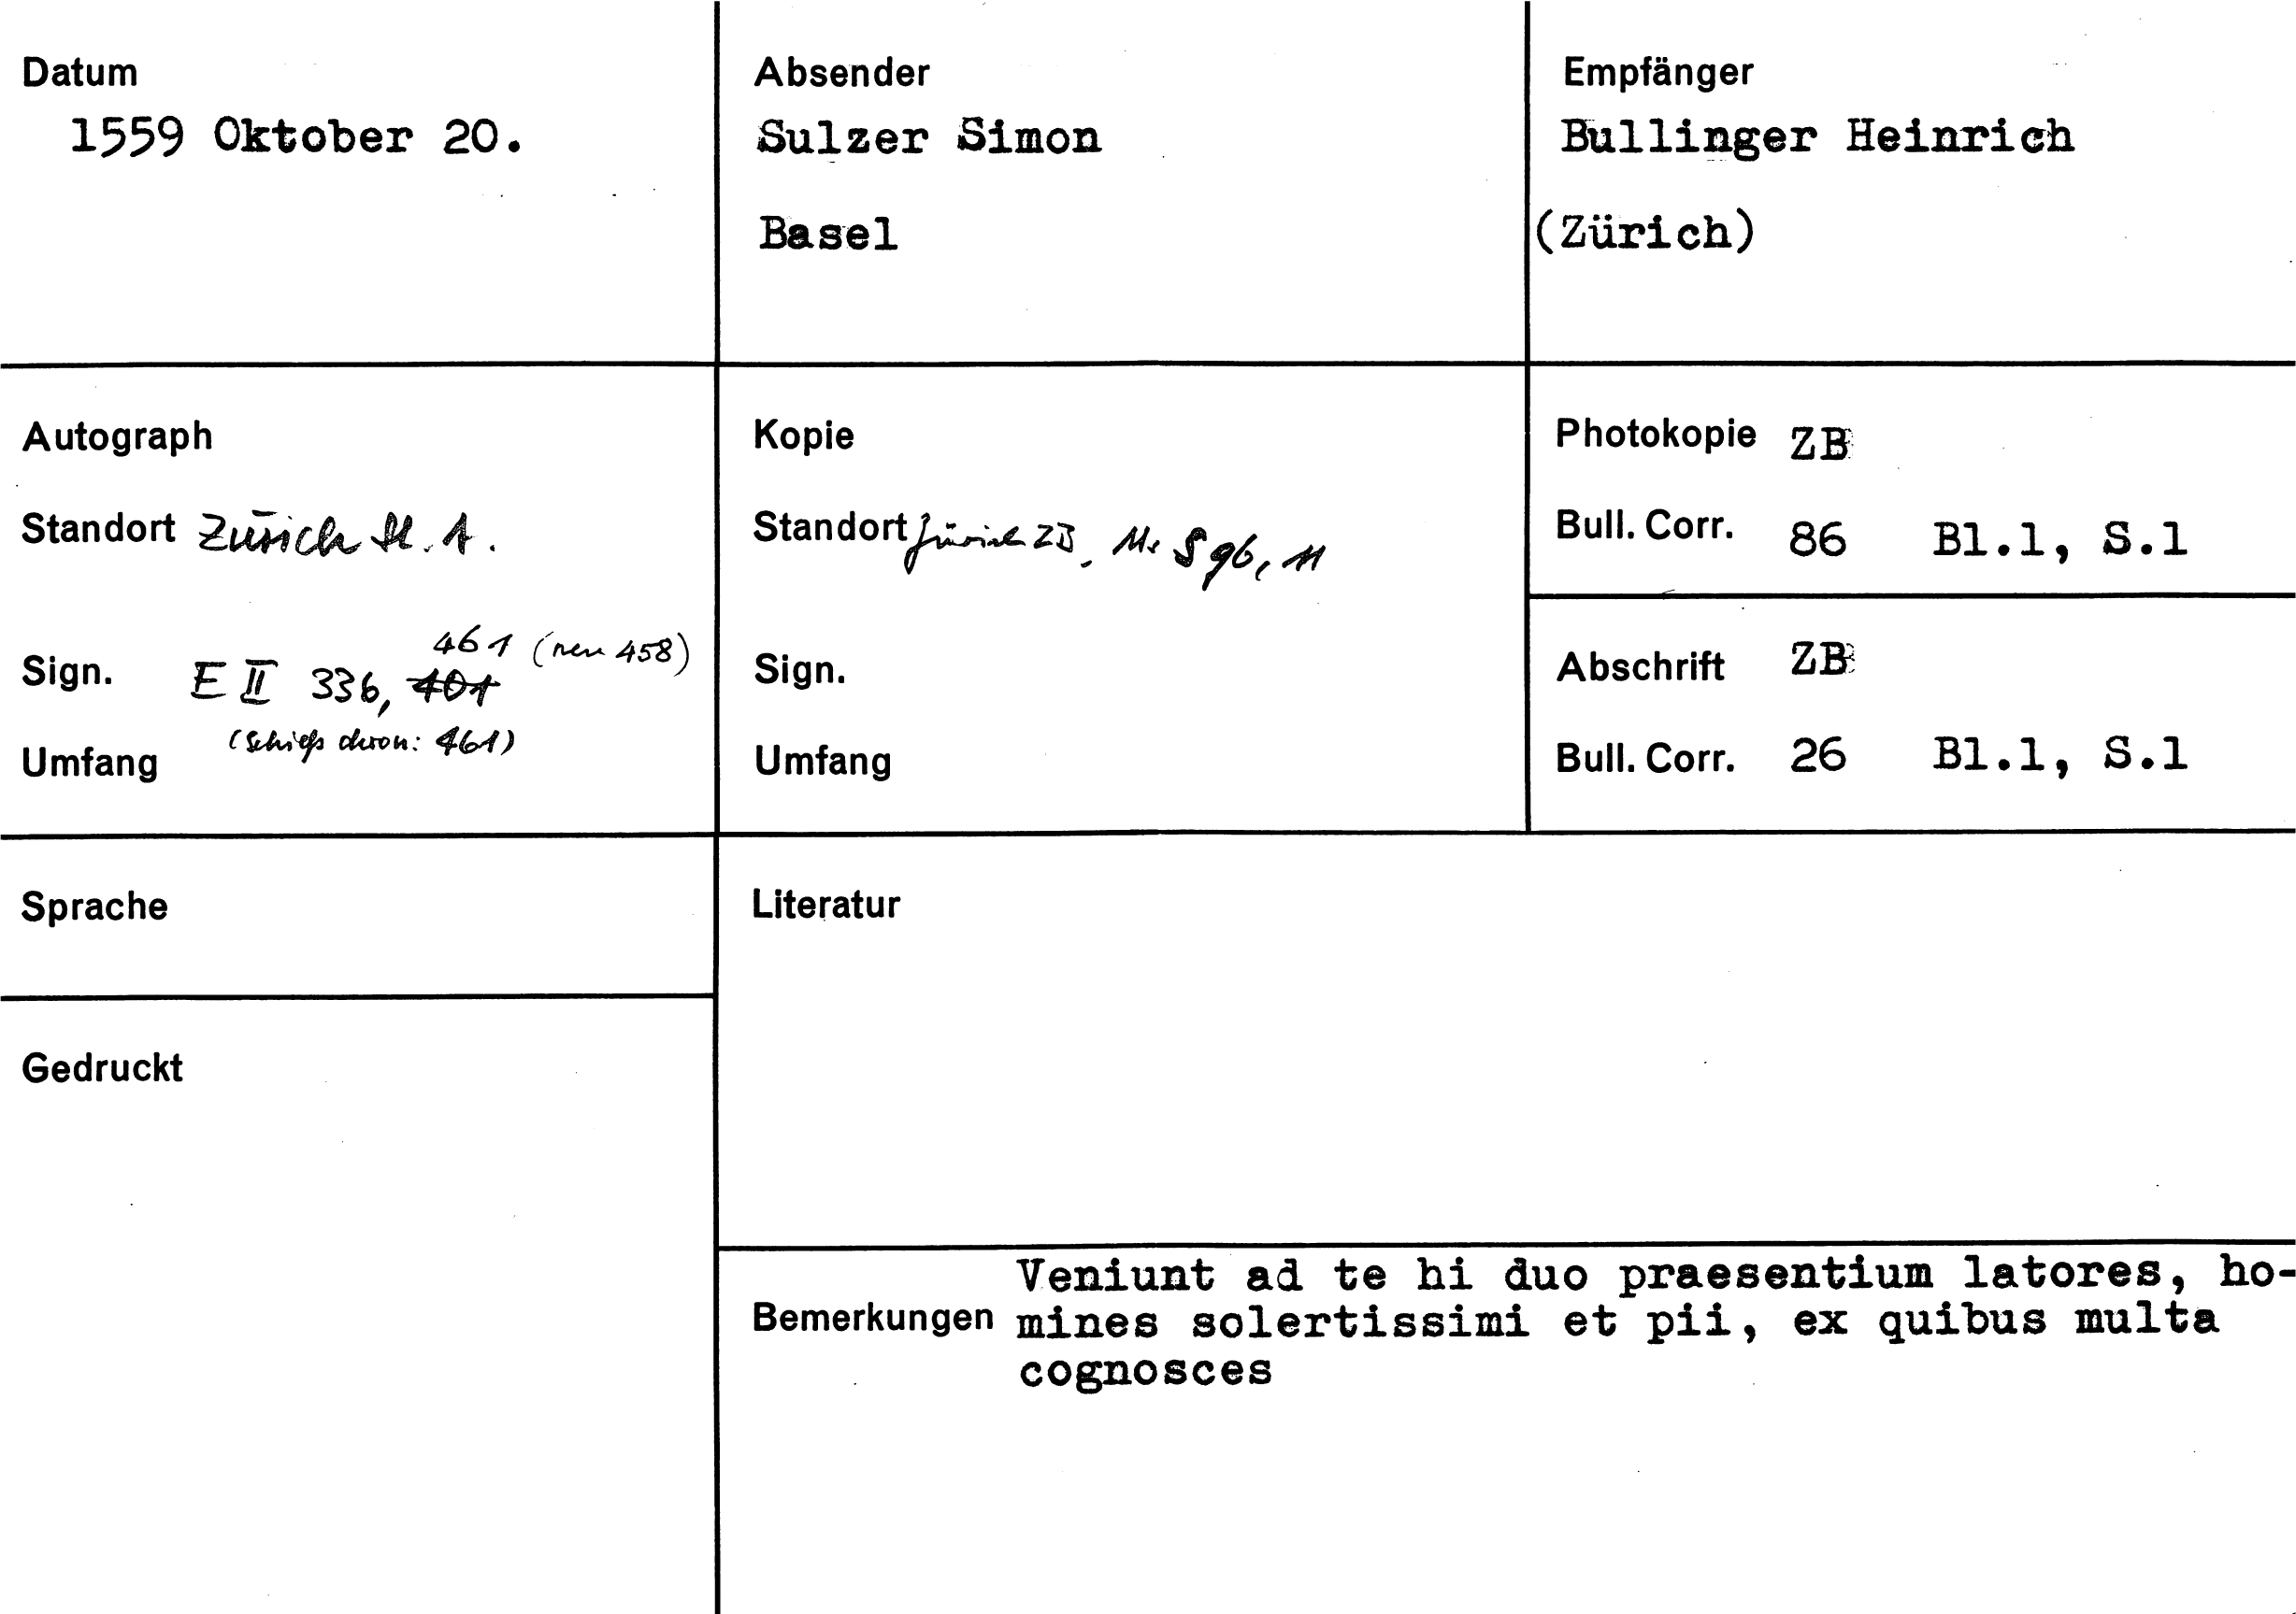 Datum
1559 Oktober 20.
Absender
Sulzer Simon
Basel
Empfänger
Bullinger Heinrich
(Zürich)
Autograph
Standort Zürich St. A.
Sign. E II 336, 401 461 (neu 458)
(Schiess davon: 461)
Umfang
Kopie
Standort Zürich ZB, Ms S 96, 11
Sign.
Umfang
Photokopie ZB
Bull. Corr. 86 Bl.1, S.1
Abschrift ZB
Bull. Corr. 26 Bl.1, S.1
Sprache
Gedruckt
Literatur
Bemerkungen
Veniunt ad te hi duo praesentium latores, ho-
mines solertissimi et pii, ex quibus multa
cognosces